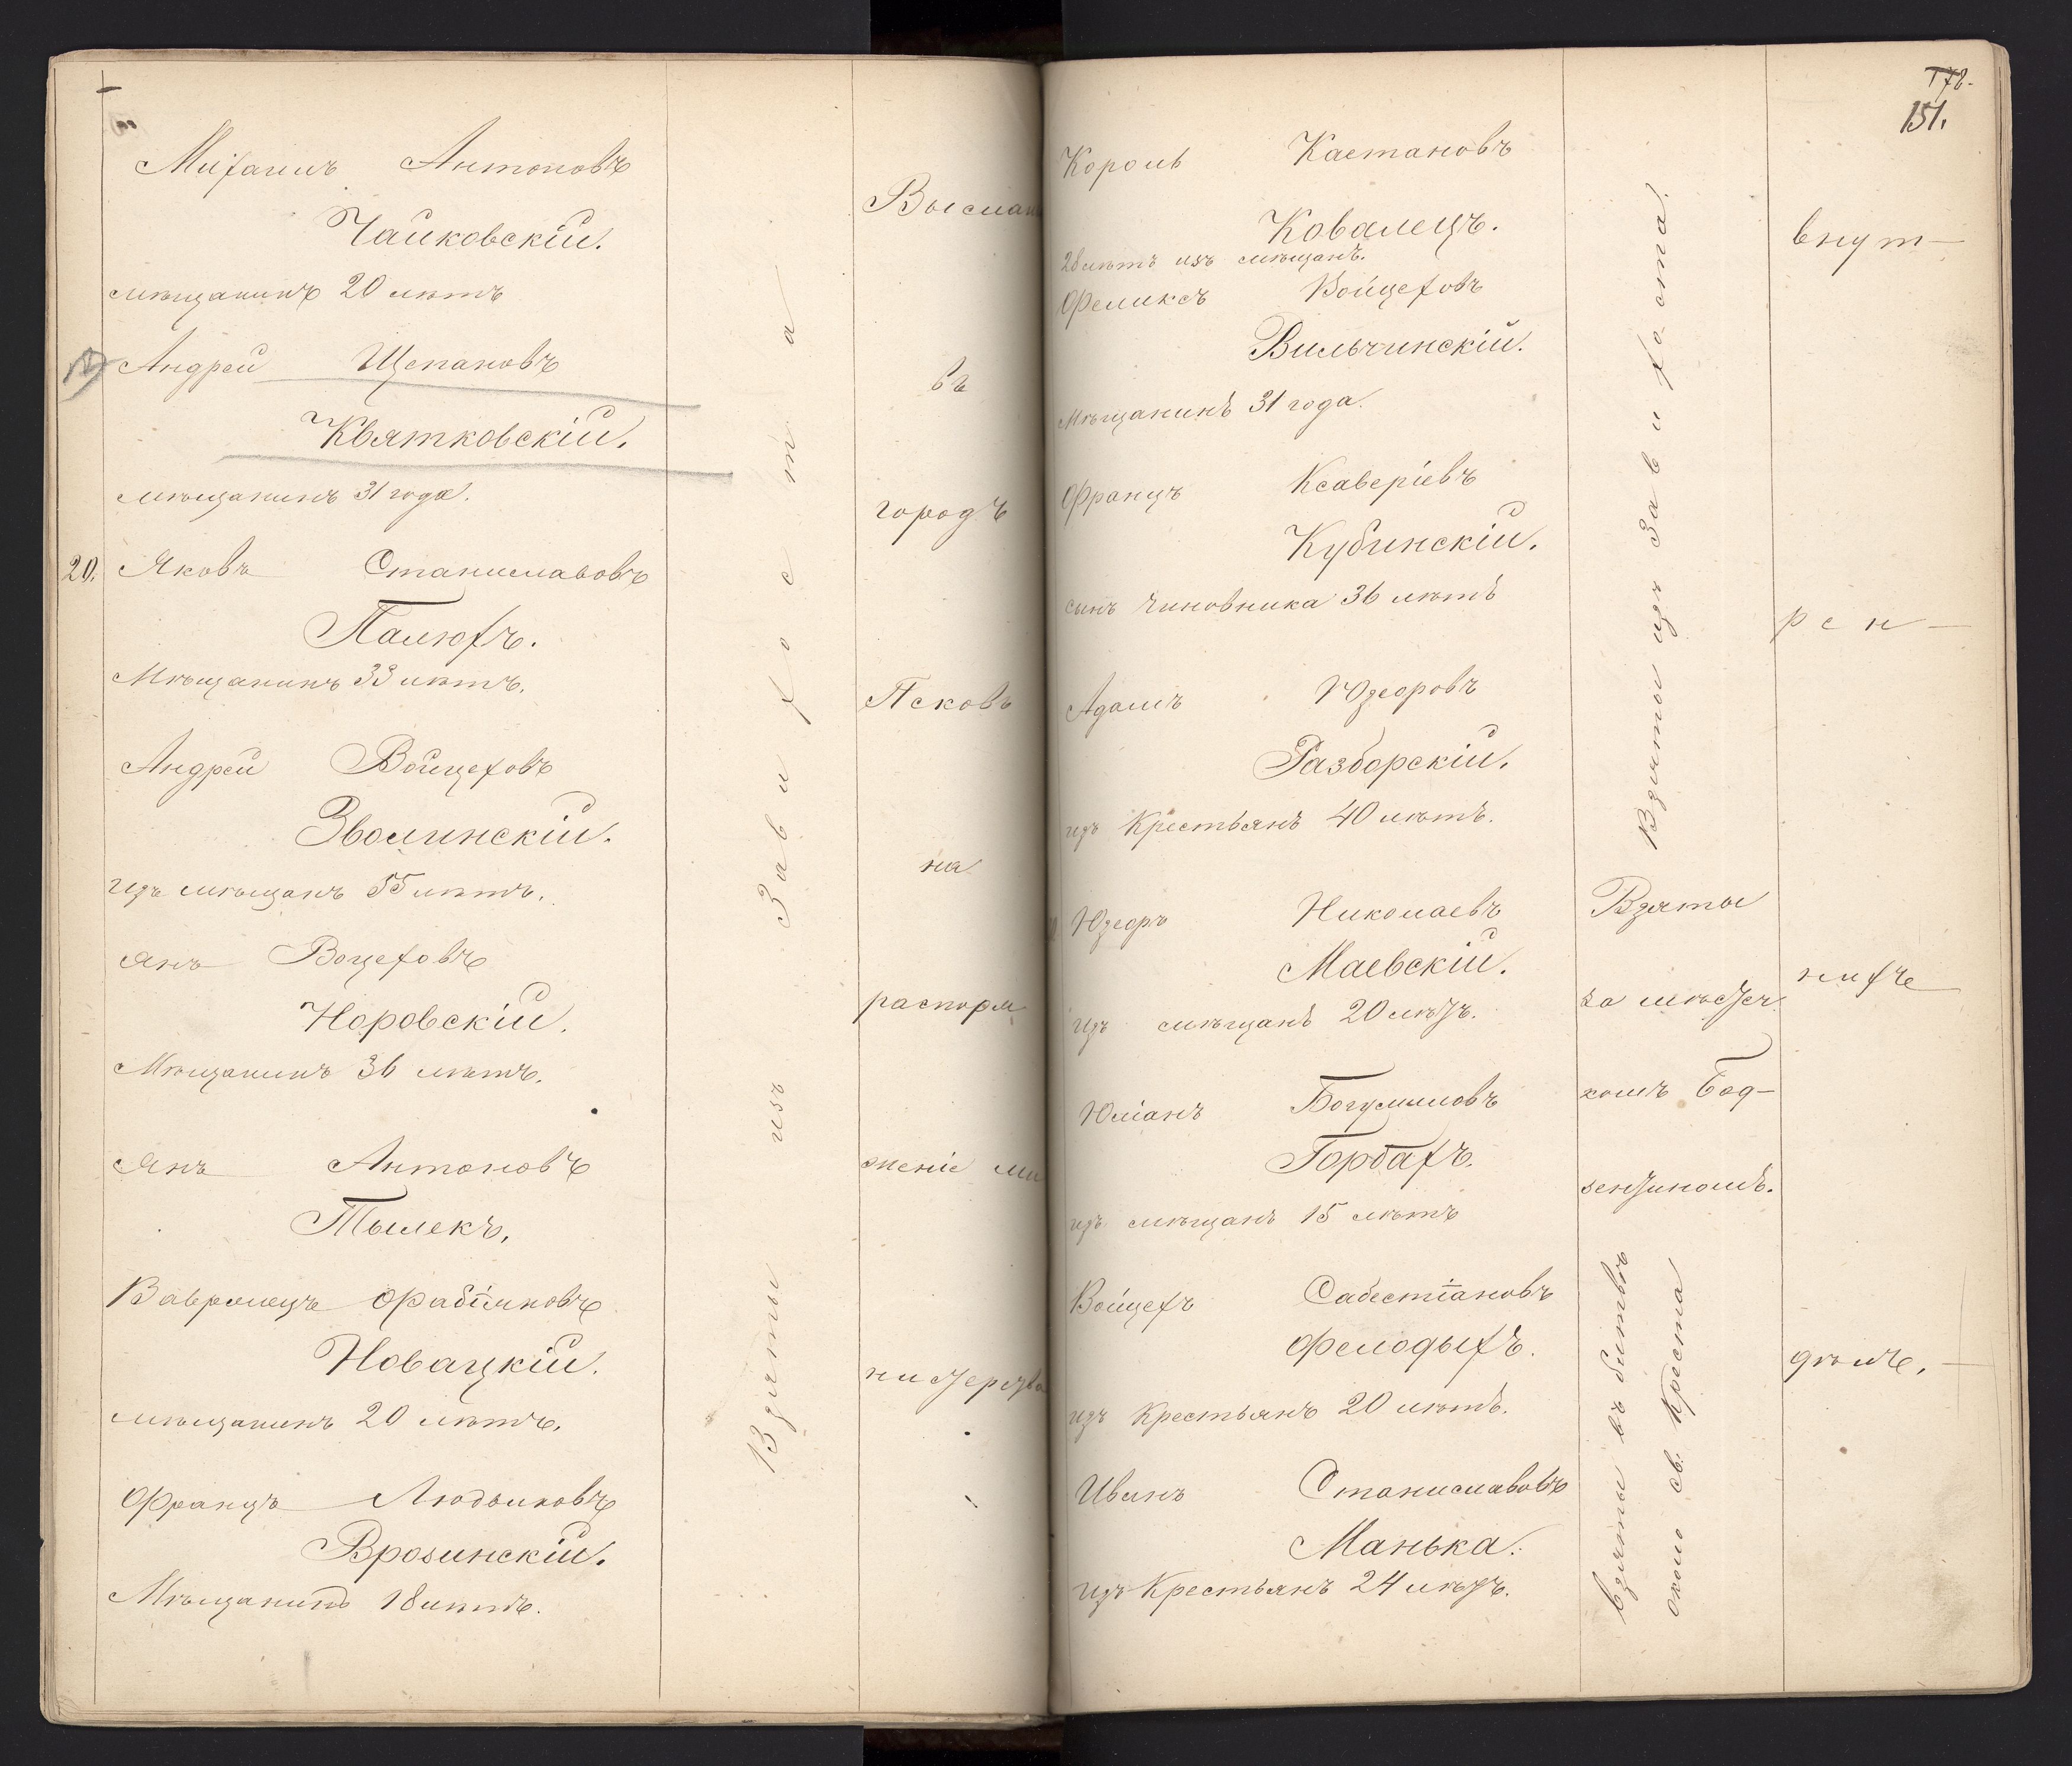 Михаилъ Антоновъ
Чайковскій.
мѣщанинъ 20 лѣтъ
Андрей Щепановъ
Квятковскій.
мѣщанинъ 31 года.
20. Яковъ Станиславовъ
Палюхъ.
Мѣщанинъ 33 лѣтъ.
Андрей Войцеховъ
Зволинскій.
изъ мѣщанъ 55 лѣтъ.
Янъ Воцеховъ
Норовскій.
Мѣщанинъ 36 лѣтъ.
Янъ Антоновъ
Тылекъ.
Вавржнецъ Фабіяновъ
Новацкій.
мѣщанинъ 20 лѣтъ.
Францъ Людвиковъ
Врозинскій.
Мѣщанинъ 18 лѣтъ.
Взяты изъ Завихоста
Высланы
въ
городъ
Псковъ
на
распоря
женіе ми
нистерства
178.
151.
Король Каетановъ
Ковалецъ.
28 лѣтъ изъ мѣщанъ.
Феликсъ Войцеховъ
Вильчинскій.
мѣщанинъ 31 года.
Францъ Ксаверіевъ
Кубинскій.
сынъ чиновника 36 лѣтъ
Адамъ Юзефовъ
Разборскій.
изъ Крестьянъ 40 лѣтъ.
Юзефъ Николаевъ
Маевскій.
изъ мѣщанъ 20 лѣтъ.
Юліанъ Богумиловъ
Горбахъ.
изъ мѣщанъ 15 лѣтъ
Войцехъ Сабестіановъ
Фелодыхъ.
изъ Крестьянъ 20 лѣтъ.
Иванъ Станиславовъ
Манька.
изъ Крестьянъ 24 лѣтъ.
Взяты изъ Завихоста.
Взяты
за мѣстеч
комъ Бод-
зентиномъ.
взяты въ битвѣ
около св. Креста
внут-
рен-
нихъ
дѣлъ.